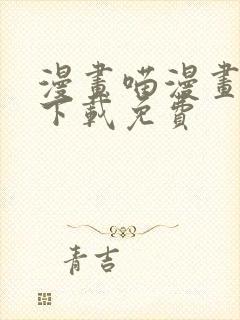 漫畫喵漫畫
下載免費
青吉